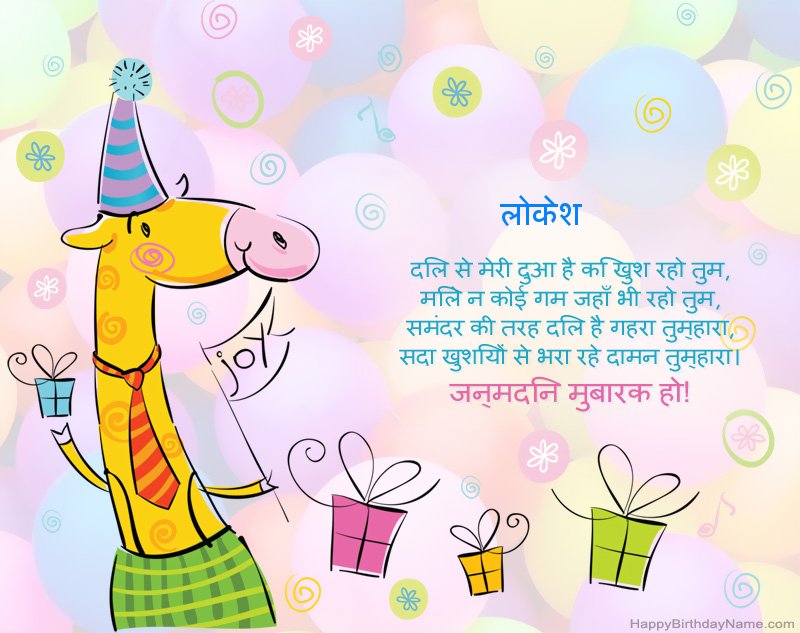 लोकेश
दलि से मेरी दुआ है क िखुश रहो तुम,
मलिे न कोई गम जहाँ भी रहो तुम,
समंदर की तरह दलि है गहरा तुम्‌हारा,
सदा खुशयिों से भरा रहे दामन तुम्‌हारा।
जन्‌मदनि मुबारक हो!
joy
HappyBirthdayName.com